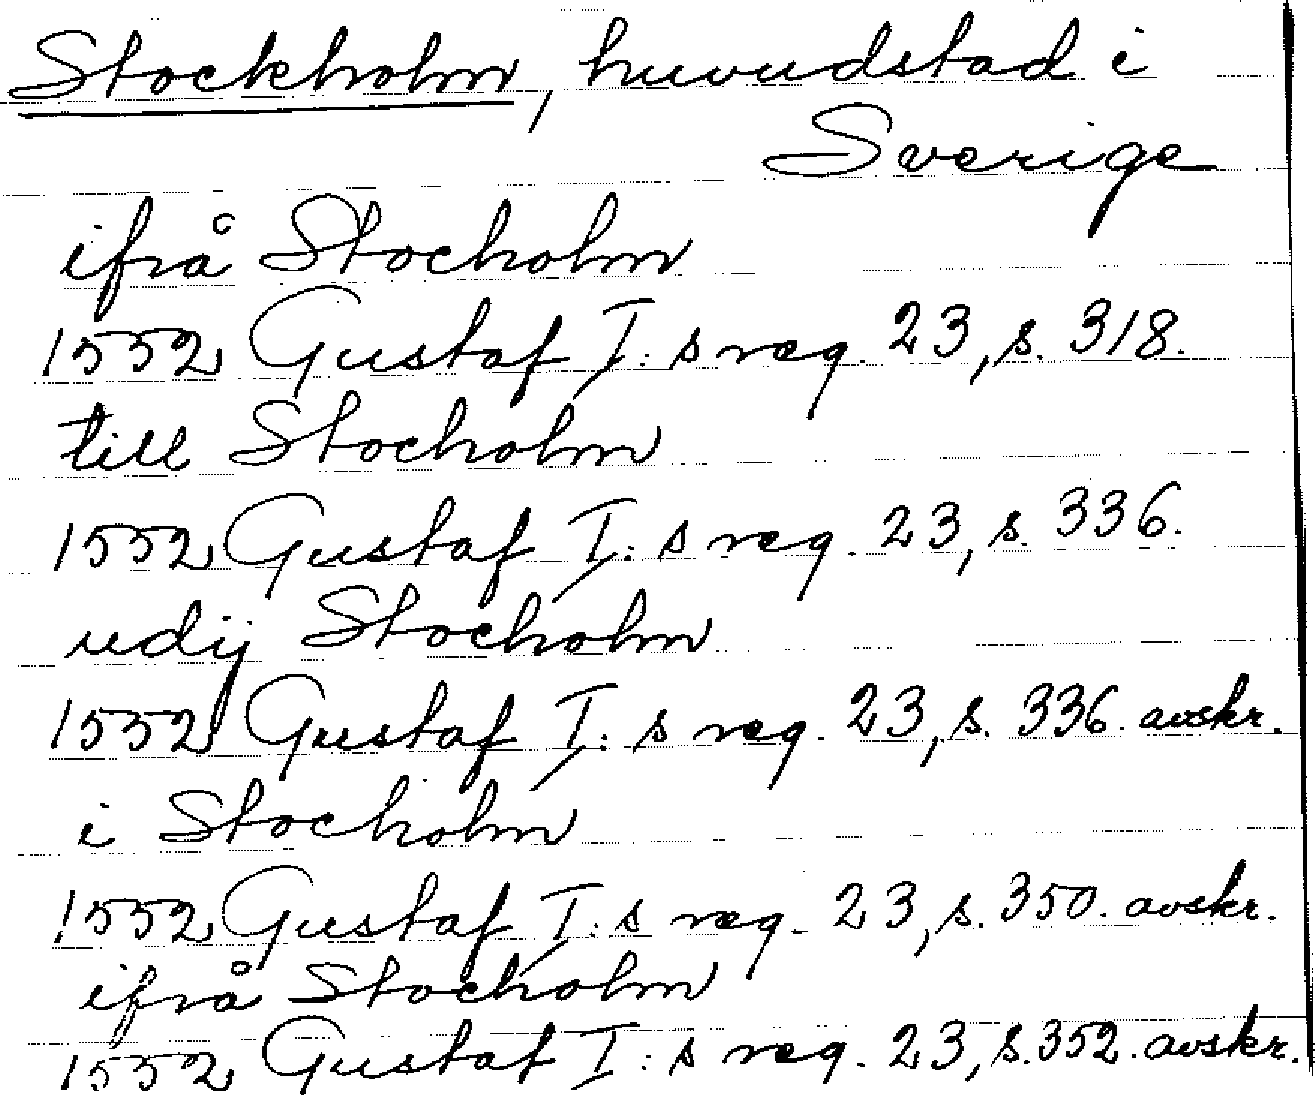 Stockholm, huvudstad i
Sverige
ifrå Stocholm
1552 Gustaf I:s reg. 23, s. 318.
till Stocholm
1552 Gustaf I:s reg. 23, s. 336.
udij Stocholm
1552 Gustaf I:s reg. 23, s. 336. avskr.
i Stocholm
1552 Gustaf I:s reg. 23, s. 350. avskr.
ifrå Stocholm
1552 Gustaf I:s reg. 23, s. 352. avskr.